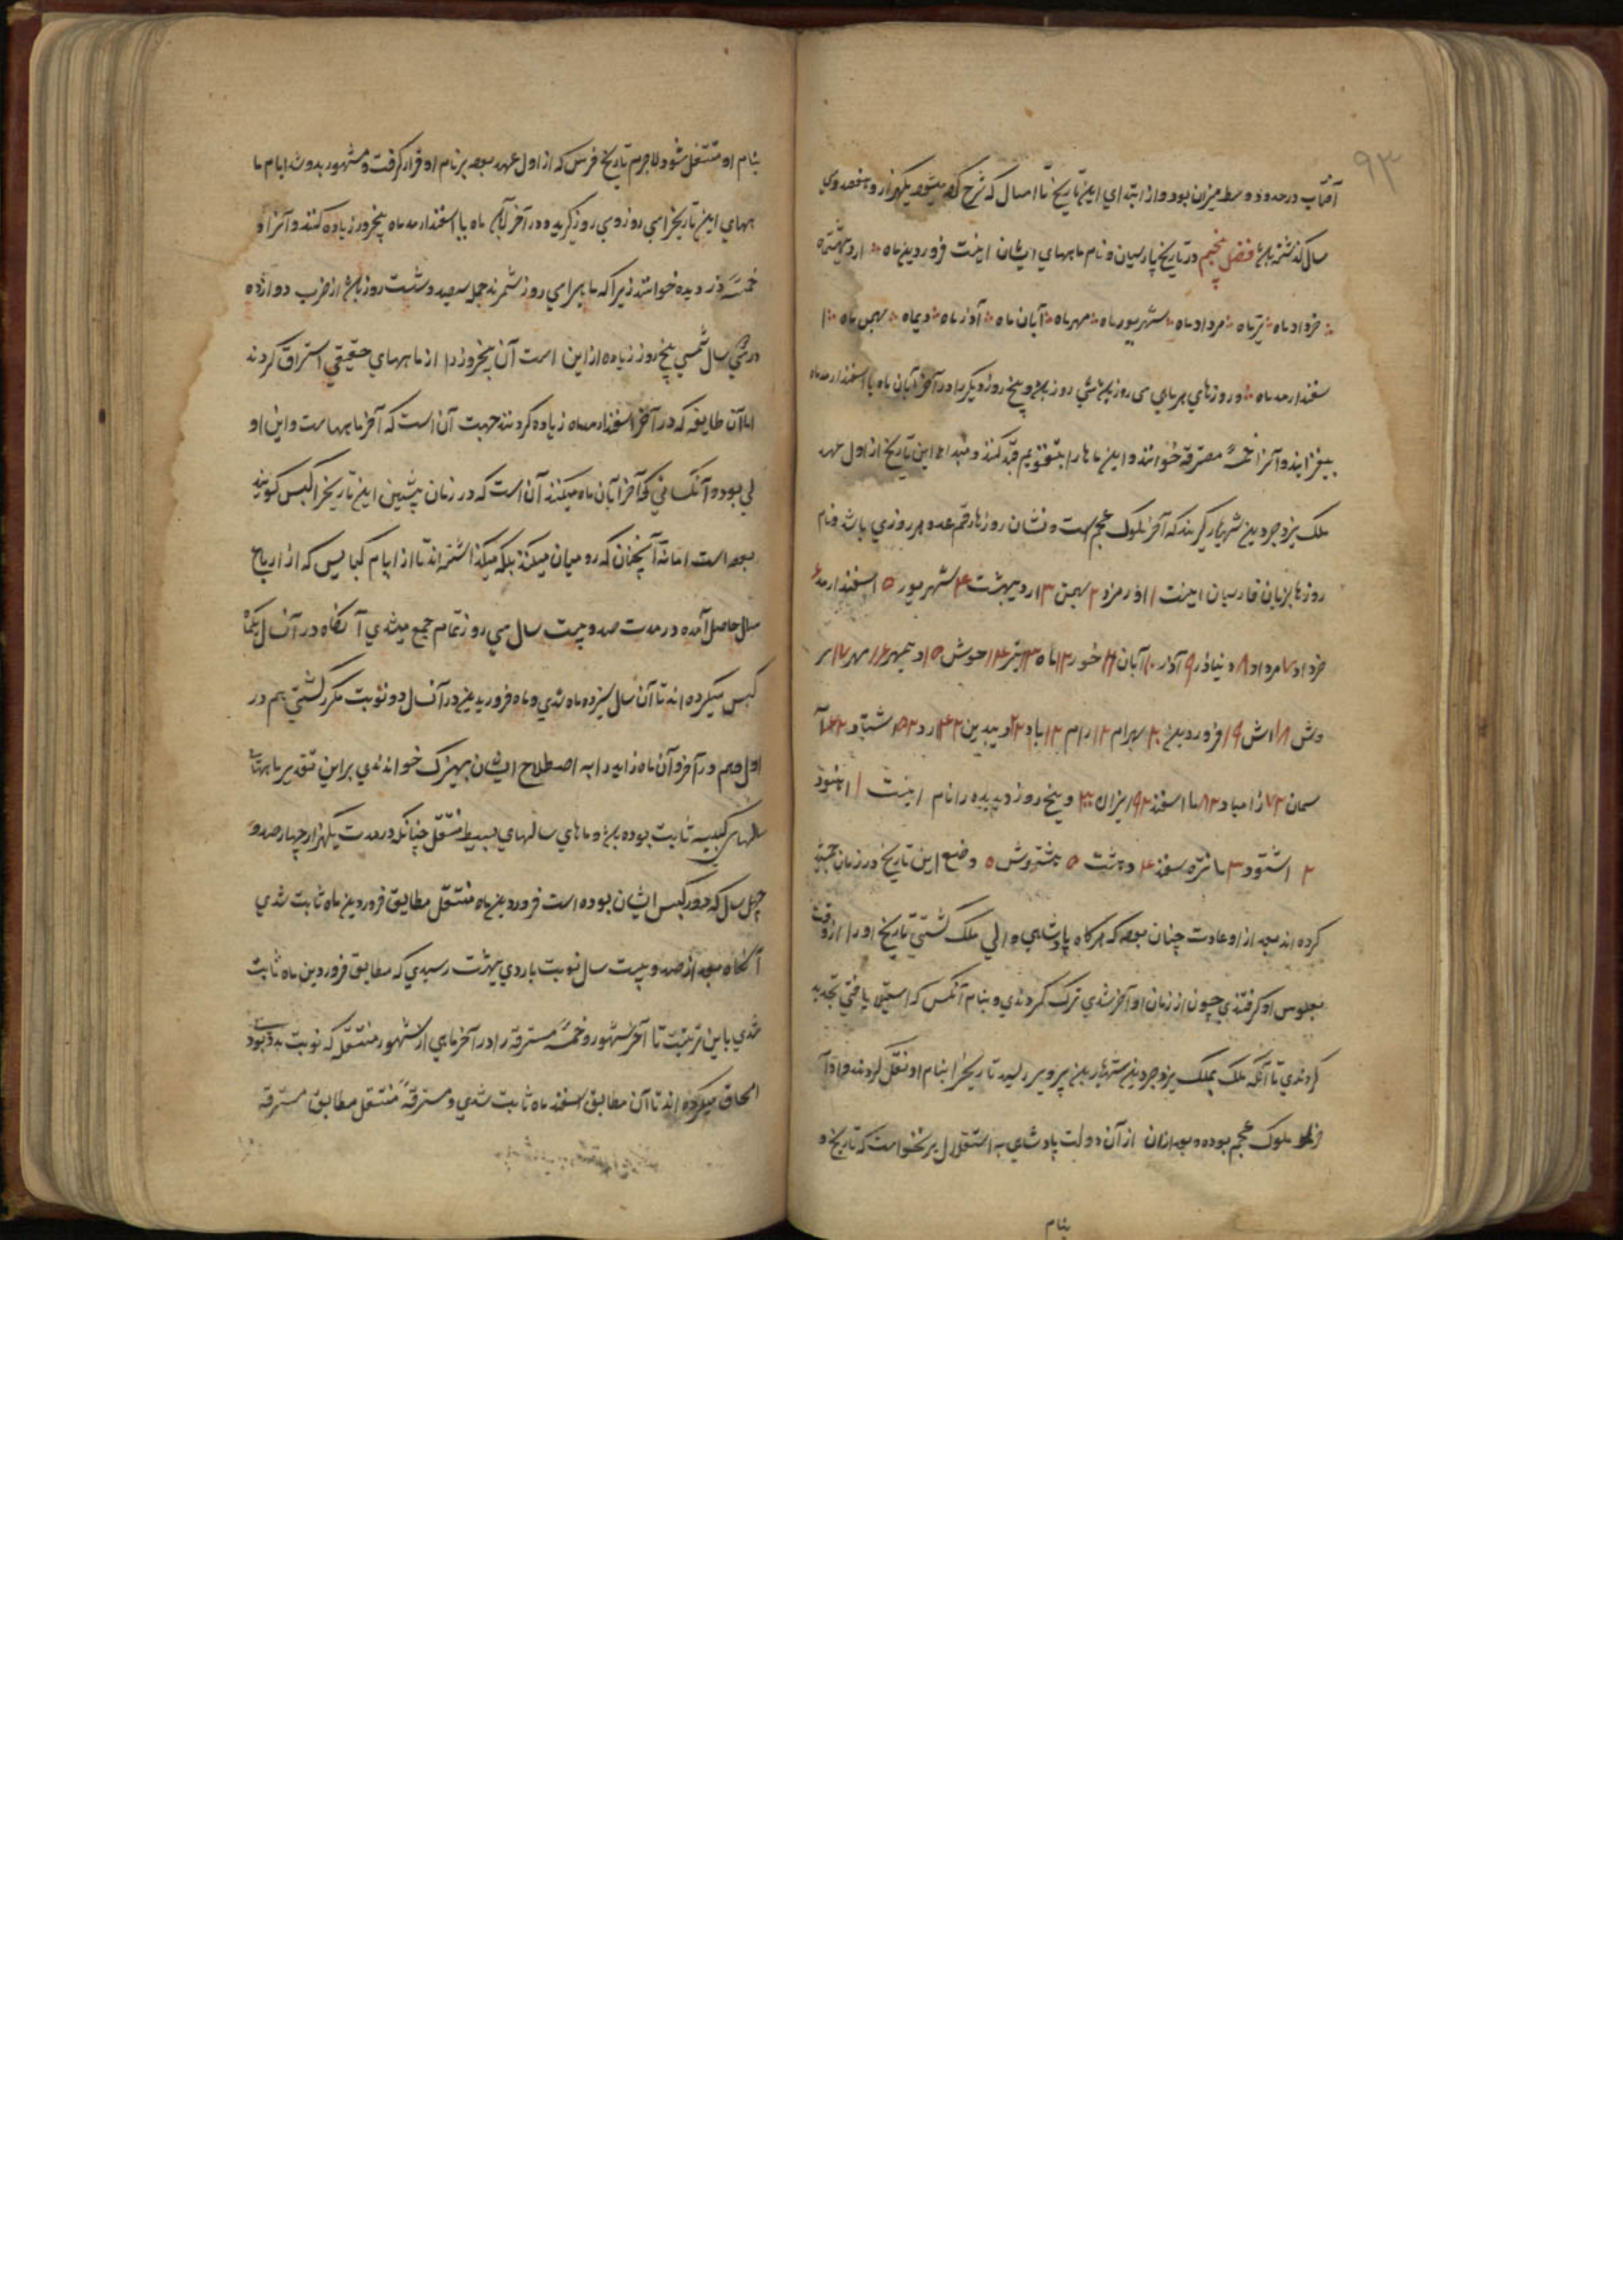 ۹۳
آفتاب در حدود وسط میزان بود و از ابتدای این تاریخ تا امسال که شرح کرده میشود یکهزار و هفصد و سی
سال گذشته باشد فصل پنجم در تاریخ پارسیان و نام ماههای ایشان اینست فروردین ماه اردیبهشتماه
خردادماه تیرماه مردادماه شهریورماه مهرماه آبان ماه آذرماه دیماه بهمن ماه ا
سفندارمدماه و روزهای هر ماهی سی روز باشد و پنج روز دیگر را در آخر آبان ماه یا اسفندارمدماه
بیفزایند و آنرا خمسهٔ مسترقه خوانند و این ماهها را بتقویم قید کنند و مبداء این تاریخ از اول عهد
ملک یزدجرد بن شهریار گیرند که آخر ملوک عجم است و نشان روزها رقم عدد هر روزی باشد و نام
روزها بزبان فارسیان اینست ۱ اورمزد ۲ بهمن ۳ اردیبهشت ۴ شهریور ۵ اسفندارمد ۶
خرداد ۷ مرداد ۸ دیباذر ۹ آذر ۱۰ آبان ۱۱ خور ۱۲ ماه ۱۳ تیر ۱۴ جوش ۱۵ دیبمهر ۱۶ مهر ۱۷ سر
وش ۱۸ رش ۱۹ فروردین ۲۰ بهرام ۲۱ رام ۲۲ باد ۲۳ دیبدین ۲۴ ارد ۲۵ اشتاد ۲۶ آ
سمان ۲۷ زامیاد ۲۸ مااسفند ۲۹ انیران ۳۰ و پنج روز دزدیده را نام اینست ۱ اهنود
۲ اشتود ۳ سفند ۴ ۵ و وضع این تاریخ در زمان جمشید
کرده اند بعد از او عادت چنان بوده که هرگاه پادشاهی والی ملک گشتی تاریخ او را از وقت
جلوس او گرفتندی چون از زمان او آخر شدی ترک کردندی و بنام آنکس که استیلا یافتی تجدید
کردندی تا آنکه ملک بملک یزدجرد بن شهریار بن پرویز رسید تاریخرا بنام او نقل کردند و او آ
خر ملوک عجم بوده و بعد از آن از آن دولت پادشاهی به استقلال برنخواست که تاریخ و
بنام
بنام او منتقل شود لاجرم تاریخ فرس که از اول عهد بود بر نام او قرار گرفت و مشهور بدو شد ایام ما
ههای این تاریخرا سی روز و سی روز گیرند و در آخر آبان ماه یا اسفندارمدماه پنجروز زیاده کنند و آنرا و
خمسهٔ دزدیده خوانند زیرا که ماهها را سی روز شمرند جمله سیصد و شست روز باشد از ضرب دوازده
در سی سال شمسی پنج روز زیاده از این است آن پنجروز را از ماههای حقیقی استراق کردند
اما آن طایفه که در آخر اسفندارمدماه زیاده کردند جهت آن است که آخر ماههاست و این او
لی بود و آنکسانی که آخر آبان ماه میکنند آن است که در زمان پیشین این تاریخرا کبس کویند
بوده است اما نه آنچنان که رومیان میکنند بلکه میکذاشته اند تا از ایام کبایس که از ارباع
سال حاصل آمده در مدت صد و بیست سال سی روز تمام جمع میشدی آنکاه در آنسال یکماه
کبس میکرده اند تا آن سال سیزده ماه شدی و ماه فروردین در آنسال دو نوبت مکرر گشتی هم در
اول و هم در آخر و آن ماه زاید را به اصطلاح ایشان بهیزک خواندندی براین تقدیر ماههای
سالهای کبیسه ثابت بوده باشد و ماههای سالهای بسیط منتقل چنانکه در مدت یکهزار چهارصد و
چهل سال که دور کبس ایشان بوده است فروردین ماه منتقل مطابق فروردین ماه ثابت شدی
آنکاه بعد از صد و بیست سال نوبت باردی بهشت رسیدی که مطابق فروردین ماه ثابت
شدی باین ترتیب تا آخر شهور و خمسهٔ مسترقه را در آخر ماهی از شهور منتقله که نوبت بدو بود
الحاق میکرده اند تا آن مطابق اسفند ماه ثابت شدی و مسترقهٔ منتقل مطابق مسترقه